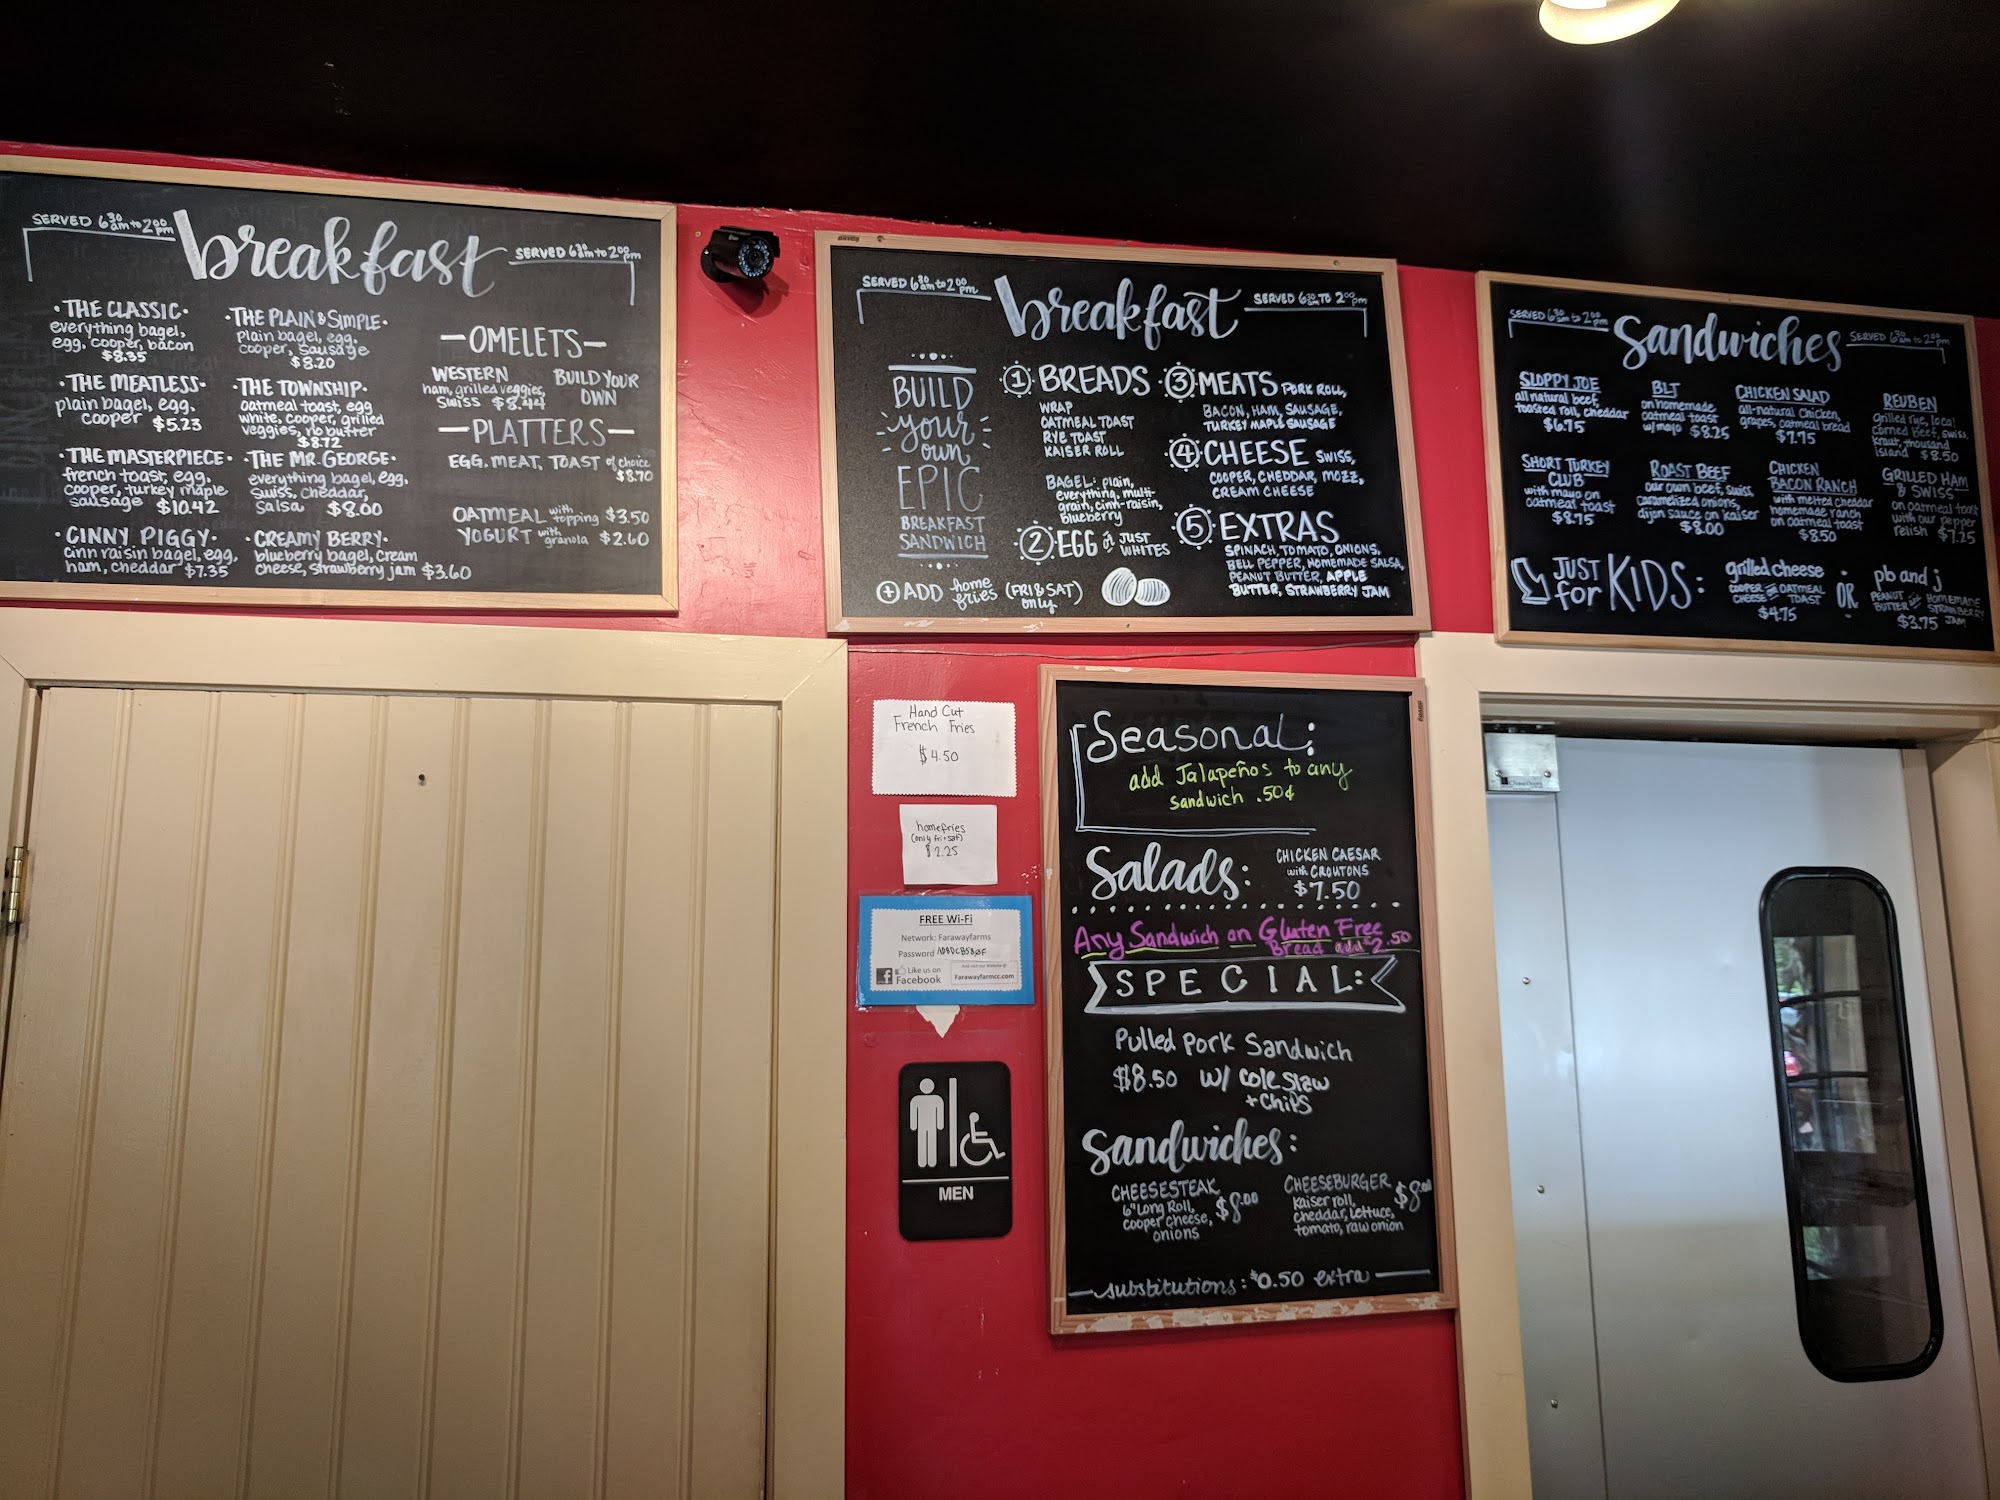 SERVED 6 30 am to 2 00 pm
breakfast
SERVED 6 30 am to 2 00 pm
· THE CLASSIC ·
everything bagel,
egg, cooper, bacon
$8.35
· THE MEATLESS ·
plain bagel, egg,
cooper $5.23
· THE MASTERPIECE ·
french toast, egg,
cooper, turkey maple
sausage $10.42
· CINNY PIGGY ·
cinn raisin bagel, egg,
ham, cheddar $7.35
· THE PLAIN & SIMPLE ·
plain bagel, egg,
cooper, sausage
$8.20
· THE TOWNSHIP ·
oatmeal toast, egg
white, cooper, grilled
veggies, no butter
$8.72
· THE MR. GEORGE ·
everything bagel, egg,
swiss, cheddar,
salsa $8.00
· CREAMY BERRY ·
blueberry bagel, cream
cheese, strawberry jam $3.60
— OMELETS —
WESTERN
ham, grilled veggies,
swiss $8.44
BUILD YOUR
OWN
— PLATTERS —
EGG, MEAT, TOAST of choice
$8.70
OATMEAL with topping $3.50
YOGURT with granola $2.60
SERVED 6 30 am to 2 00 pm
breakfast
SERVED 6 30 am TO 2 00 pm
BUILD
your
own
EPIC
BREAKFAST
SANDWICH
1 BREADS
WRAP
OATMEAL TOAST
RYE TOAST
KAISER ROLL
BAGEL: plain,
everything, multi-
grain, cinn-raisin,
blueberry
2 EGG or JUST
WHITES
+ ADD home
fries (FRI & SAT)
only
3 MEATS PORK ROLL,
BACON, HAM, SAUSAGE,
TURKEY MAPLE SAUSAGE
4 CHEESE SWISS,
COOPER, CHEDDAR, MOZZ,
CREAM CHEESE
5 EXTRAS
SPINACH, TOMATO, ONIONS,
BELL PEPPER, HOMEMADE SALSA,
PEANUT BUTTER, APPLE
BUTTER, STRAWBERRY JAM
SERVED 6 30 am to 2 00 pm
Sandwiches
SERVED 6 30 am to 2 00 pm
SLOPPY JOE
all natural beef,
toasted roll, cheddar
$6.75
BLT
on homemade
oatmeal toast
w/mayo $8.25
CHICKEN SALAD
all-natural chicken,
grapes, oatmeal bread
$7.75
REUBEN
Grilled rye, local
corned beef, swiss,
kraut, thousand
island $8.50
SHORT TURKEY
CLUB
with mayo on
oatmeal toast
$8.75
ROAST BEEF
our own beef, swiss,
caramelized onions,
dijon sauce on kaiser
$8.00
CHICKEN
BACON RANCH
with melted cheddar
homemade ranch
on oatmeal toast
$8.50
GRILLED HAM
& SWISS
on oatmeal toast
with our pepper
relish $7.25
JUST
for KIDS:
grilled cheese
COOPER CHEESE ON OATMEAL
TOAST
$4.75
OR
pb and j
PEANUT BUTTER and HOMEMADE STRAWBERRY JAM
$3.75
Hand Cut
French Fries
$4.50
homefries
(only fri + sat)
$2.25
FREE Wi-Fi
Network: Farawayfarms
Password
Like us on
Facebook
And visit our Website @
Farawayfarmcc.com
MEN
Seasonal:
add Jalapeños to any
sandwich .50¢
Salads:
CHICKEN CAESAR
with CROUTONS
$7.50
Any Sandwich on Gluten Free
Bread add $2.50
SPECIAL:
Pulled Pork Sandwich
$8.50 w/ cole slaw
+ chips
Sandwiches:
CHEESESTEAK
6" Long Roll,
cooper cheese,
onions
$8.00
CHEESEBURGER
Kaiser roll,
cheddar, lettuce,
tomato, raw onion
$8.00
— substitutions: $0.50 extra —